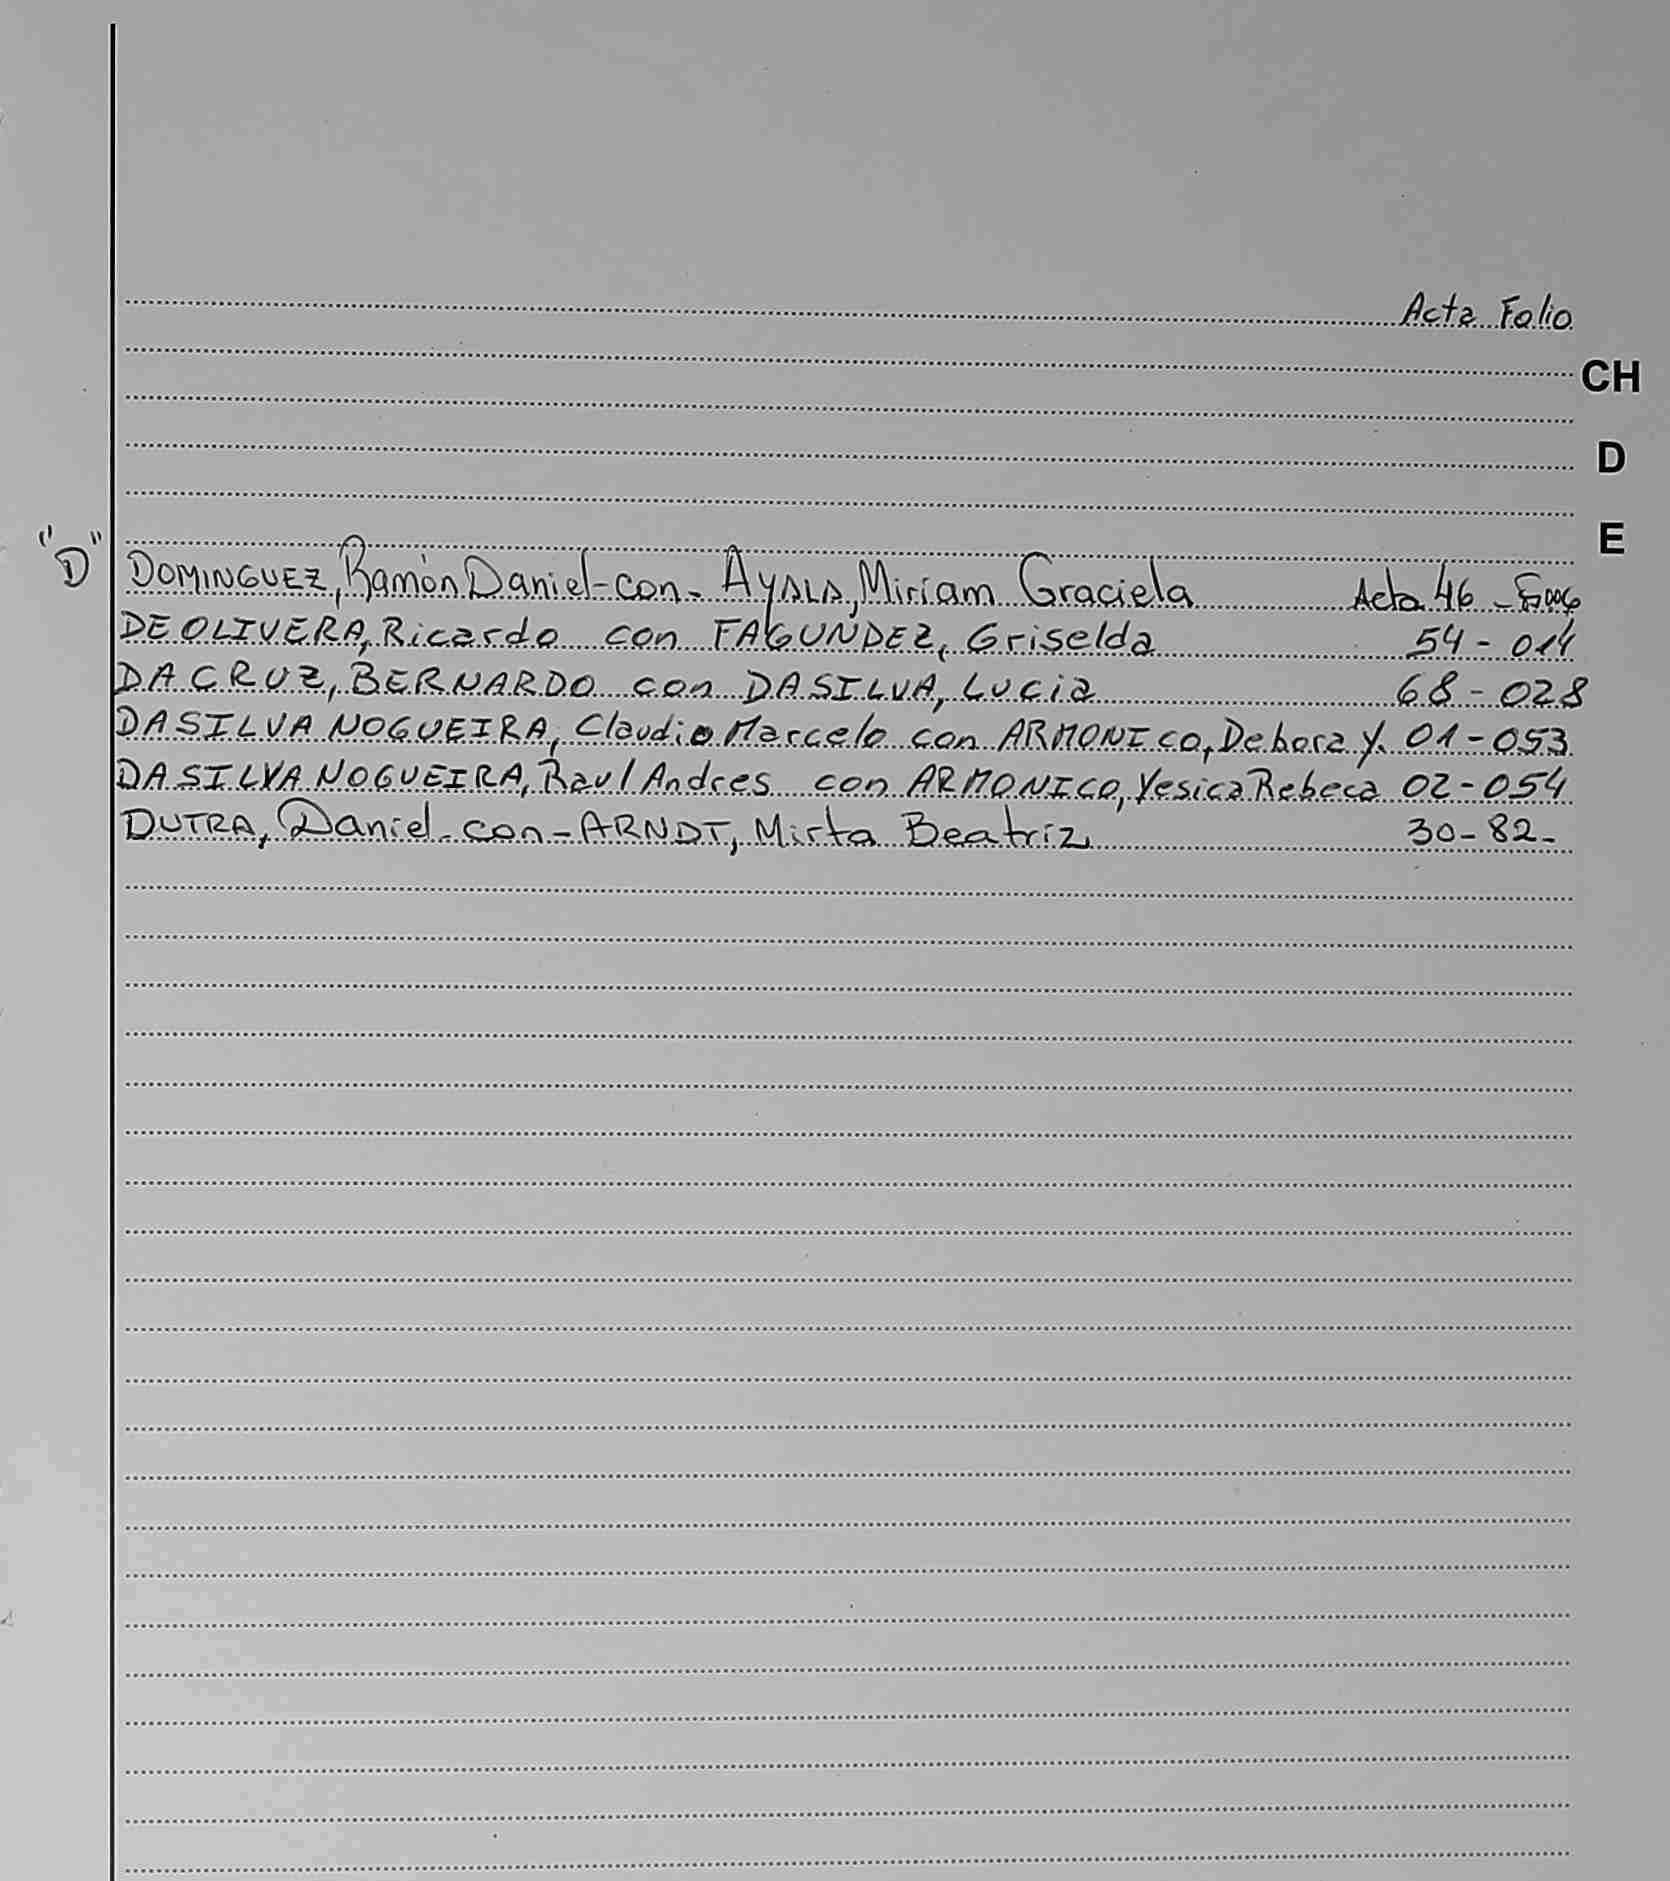 Acta Folio
CH
D
E
"D" DOMINGUEZ, Ramón Daniel-con- AYALA, Miriam Graciela Acta 46 - F006
DEOLIVERA, Ricardo con FAGUNDEZ, Griselda 54 - 014
DACRUZ, BERNARDO con DASILVA, Lucia 68 - 028
DASILVA NOGUEIRA, Claudio Marcelo con ARMONICO, Debora Y. 01 - 053
DASILVA NOGUEIRA, Raul Andres con ARMONICO, Yesica Rebeca 02 - 054
DUTRA, Daniel con - ARNDT, Mirta Beatriz 30 - 82 -